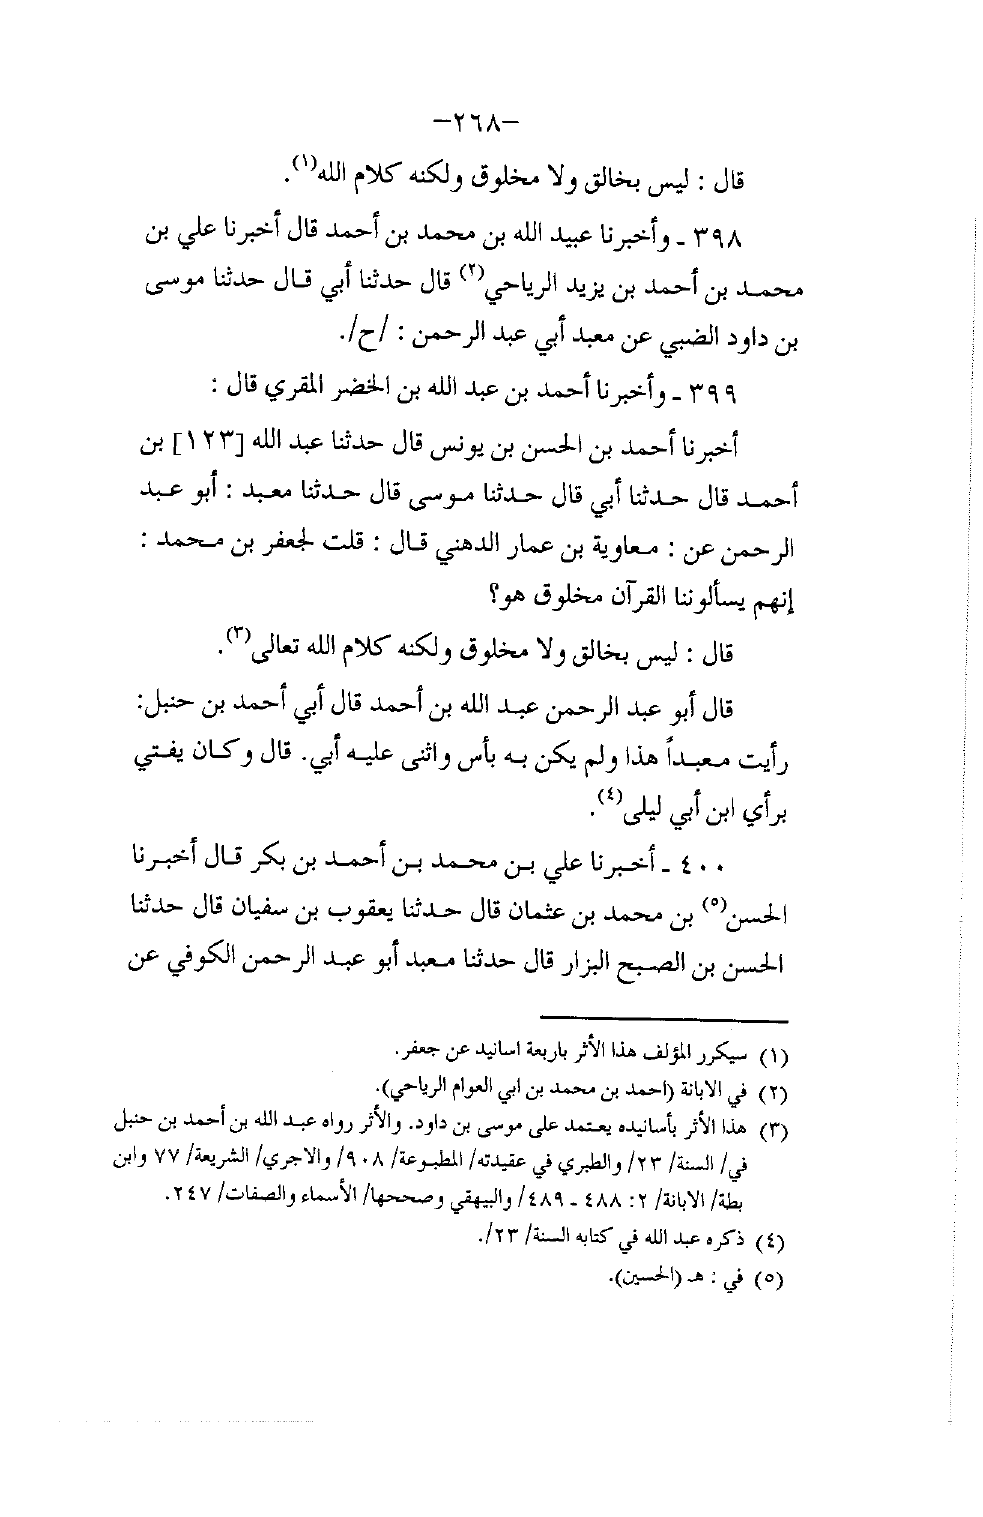 -٢٦٨-
قال : ليس بخالق ولا مخلوق ولكنه كلام الله(١).
٣٩٨ ـ وأخبرنا عبيد الله بن محمد بن أحمد قال أخبرنا علي بن
محمد بن أحمد بن يزيد الرياحي(٢) قال حدثنا أبي قال حدثنا موسى
بن داود الضبي عن معبد أبي عبد الرحمن : /ح/.
٣٩٩ ـ وأخبرنا أحمد بن عبد الله بن الخضر المقري قال :
أخبرنا أحمد بن الحسن بن يونس قال حدثنا عبد الله [١٢٣] بن
أحمد قال حدثنا أبي قال حدثنا موسى قال حدثنا معبد : أبو عبد
الرحمن عن : معاوية بن عمار الدهني قال : قلت لجعفر بن محمد :
إنهم يسألوننا القرآن مخلوق هو؟
قال : ليس بخالق ولا مخلوق ولكنه كلام الله تعالى(٣).
قال أبو عبد الرحمن عبد الله بن أحمد قال أبي أحمد بن حنبل:
رأيت معبداً هذا ولم يكن به بأس واثنى عليه أبي. قال وكان يفتي
برأي ابن أبي ليلى(٤).
٤٠٠ ـ أخبرنا علي بن محمد بن أحمد بن بكر قال أخبرنا
الحسن(٥) بن محمد بن عثمان قال حدثنا يعقوب بن سفيان قال حدثنا
الحسن بن الصبح البزار قال حدثنا معبد أبو عبد الرحمن الكوفي عن
(١) سيكرر المؤلف هذا الأثر باربعة اسانيد عن جعفر.
(٢) في الابانة (احمد بن محمد بن ابي العوام الرياحي).
(٣) هذا الأثر بأسانيده يعتمد على موسى بن داود. والأثر رواه عبد الله بن أحمد بن حنبل
في/ السنة/ ٢٣/ والطبري في عقيدته/ المطبوعة/ ٩٠٨/ والاجري/ الشريعة/ ٧٧ وابن
بطة/ الابانة/ ٢: ٤٨٨ ـ ٤٨٩/ والبيهقي وصححها/ الأسماء والصفات/ ٢٤٧.
(٤) ذكره عبد الله في كتابه السنة/ ٢٣/.
(٥) في : هـ (الحسين).